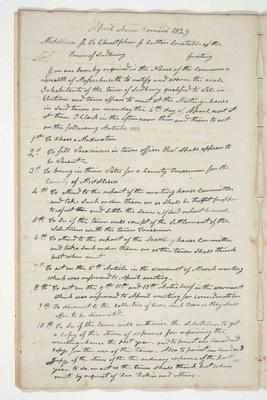 April Anno Domini 1829
Middlesex Ss To Christopher G Cutter Constable of the
Town of Sudbury Greeting
You are hereby required in the Name of the Commonwealth
of Massachusetts to notify and warn the male
Inhabitants of the town of Sudbury qualified to Vote in
Elections and town affairs to meet at the Meeting house
in said town on monday the 6th day of April next at
at Three O Clock in the afternoon then and there to act
on the following Articles viz
1st To chose a Moderator
2d To fill Vacancies in town offices that shall appear to
be Vacant
3d To bring in their Votes for a County Treasurer for the
County of Middlesex
4th To attend to the report of the meeting house Committee
and take such order thereon as shall be thought proper
to adjust and settle the same if said report
5th To see if the town will except of the Settlement of the
Selectmen with the town Treasurer
6th To attend to the report of the house Committee
and take such order thereon as the town shall think
best when met
7th To act on the 5th Article in the warrant of March meeting
which was refered to April meeting
8th To act on the 9th 11th and 13th Articles in the warrant
which was refered to April meeting for consideration
9th To discount to the collectors of such Taxes as they shall
offer to be discounted
10th To see if the town will authorize the Selectmen to get
a copy of the items of expences for repairing the
meeting house the past year and to print one hundred
copys for the use of the town Also to print one hundred
Copys of the items of the ordinary expences of the past
year to do or act as the town shall think best when
met by request of Dea Dakin and others